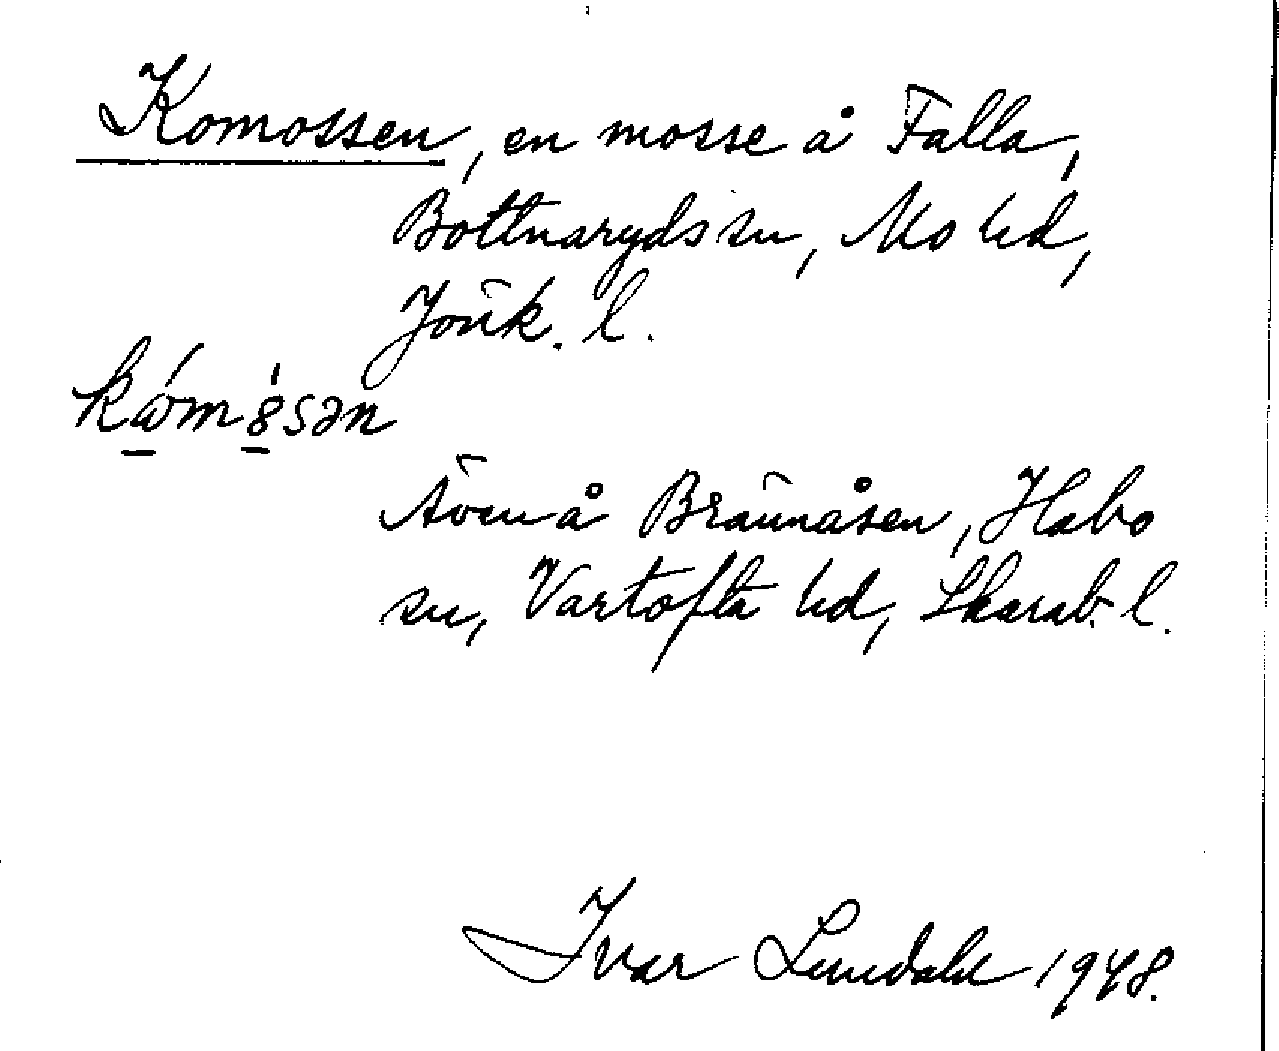 Komossen, en mosse å Falla,
Bottnaryds sn, Mo hd,
Jönk. l.
Även å Brännåsen, Habo
sn, Vartofta hd, Skarab. l.
Ivar Lundahl 1948.